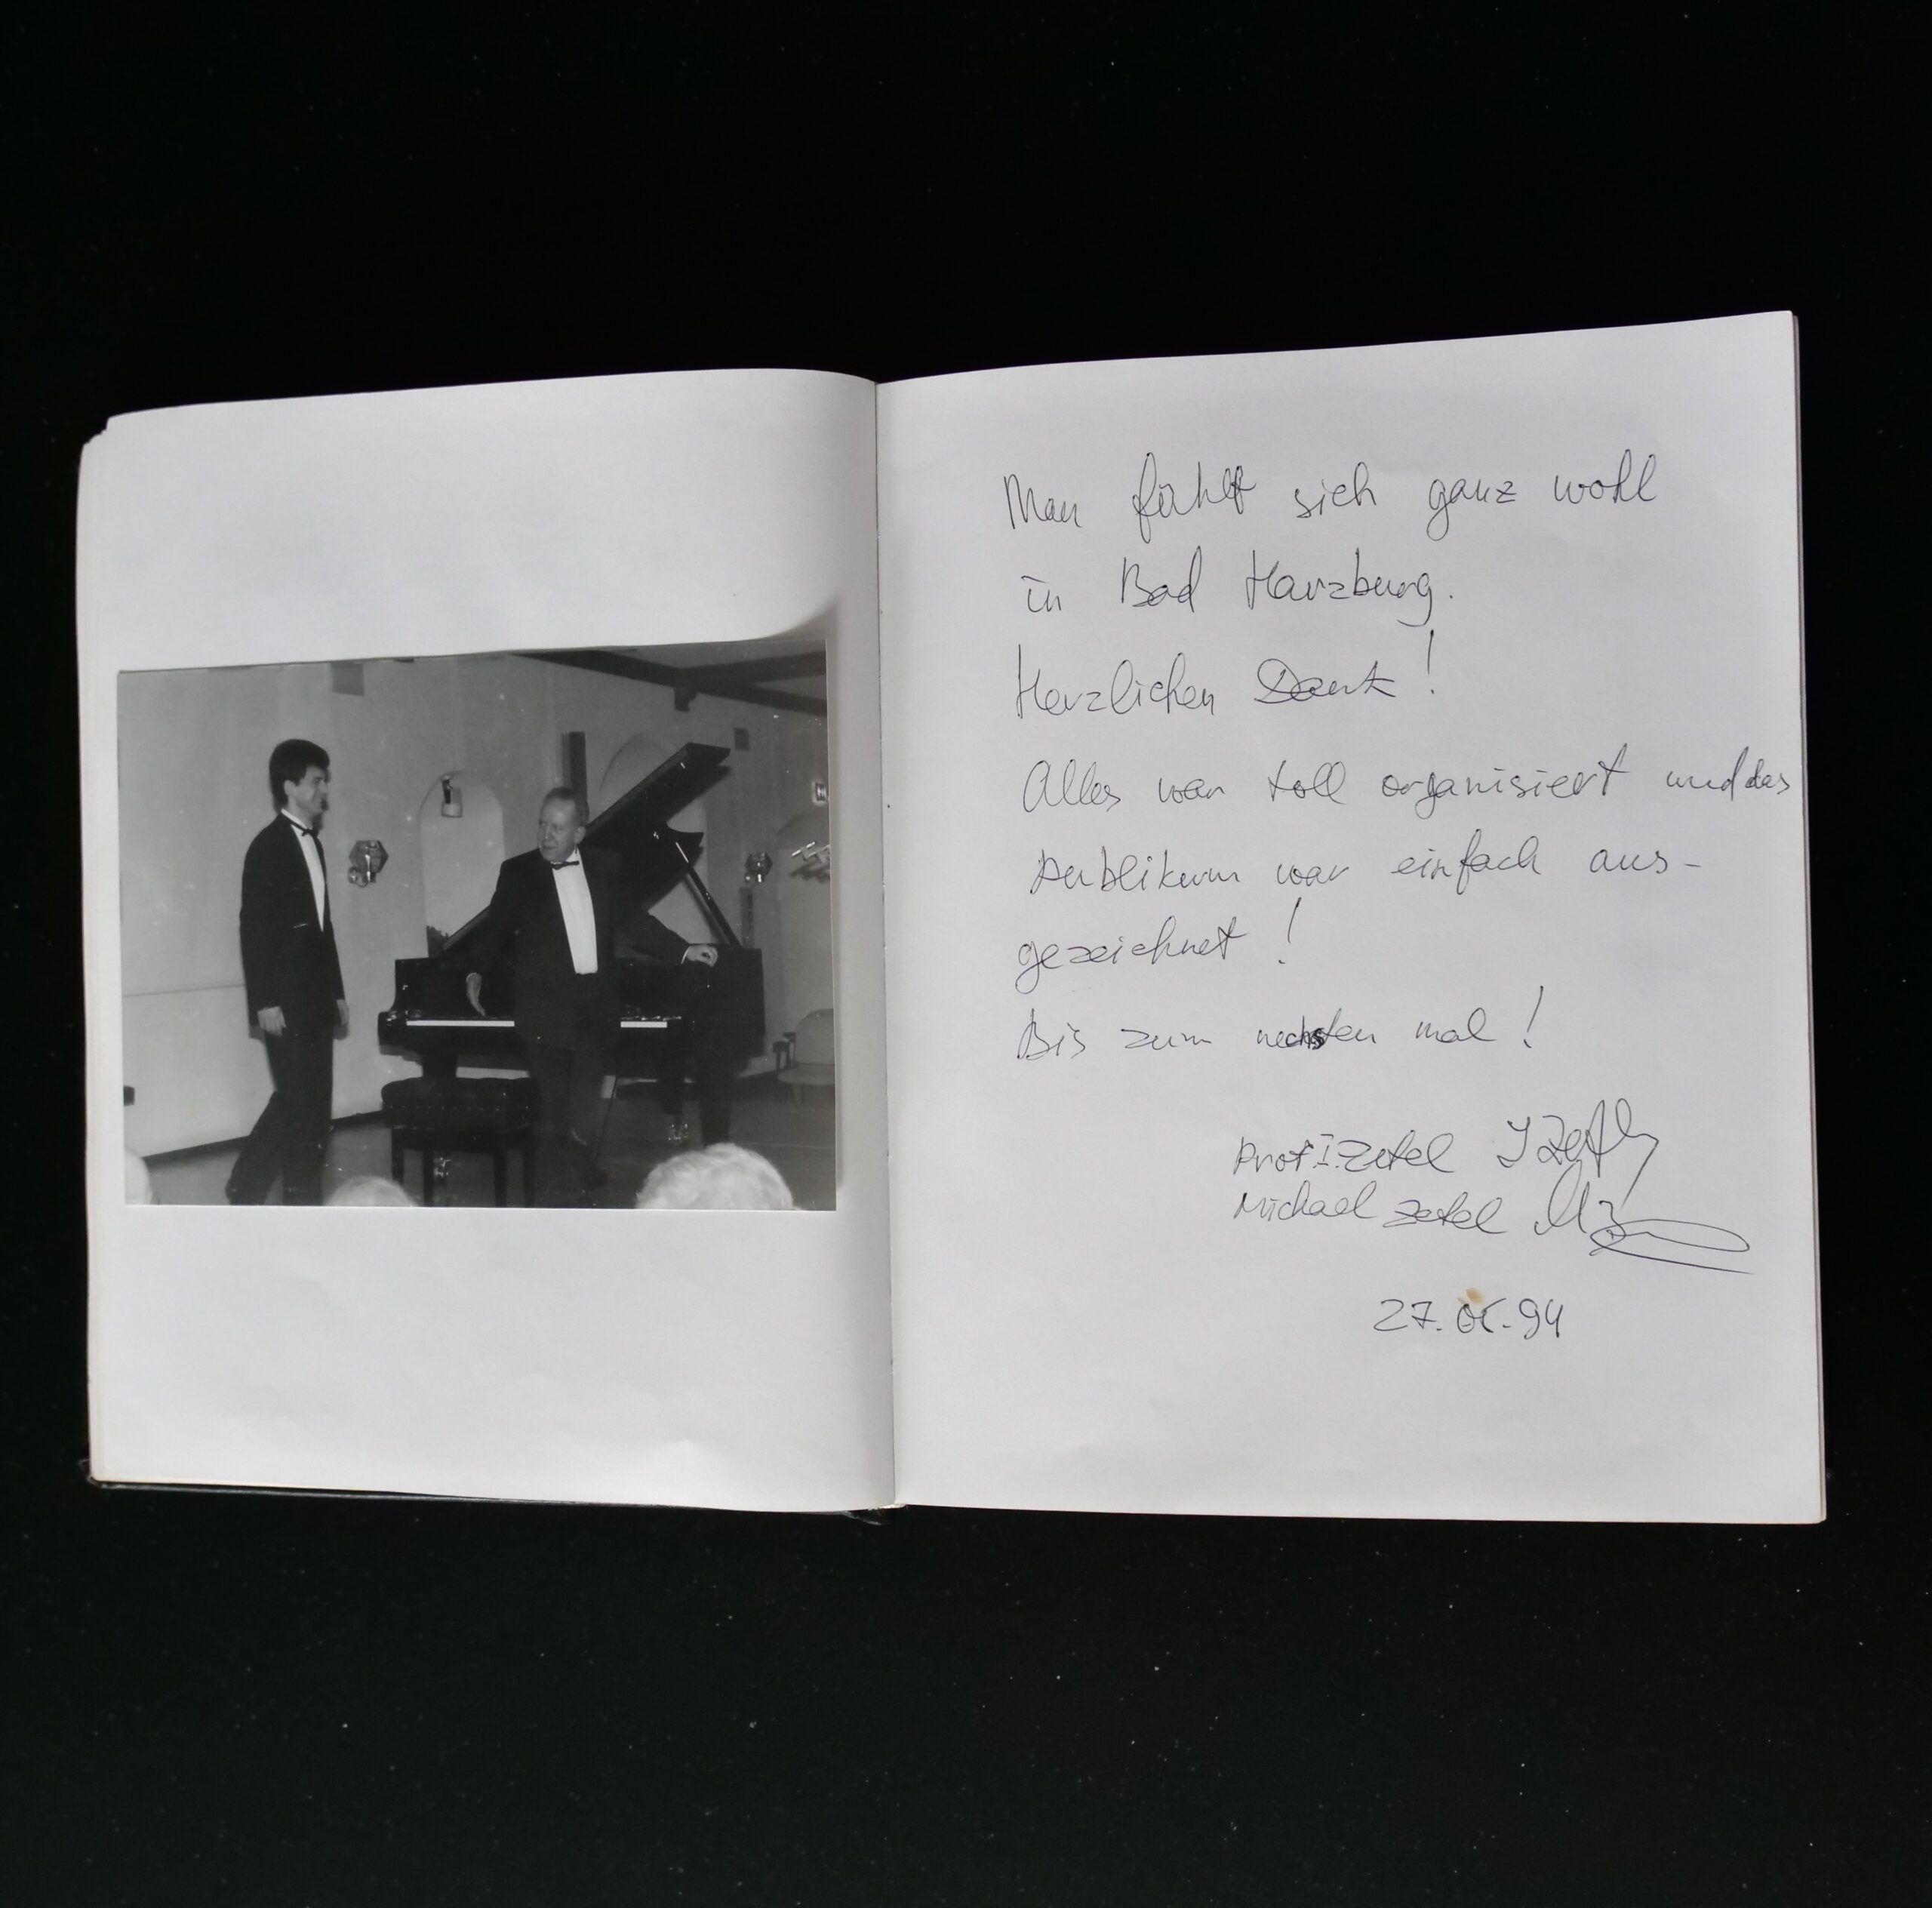 Man fühlt sich ganz wohl
in Bad Harzburg.
Herzlichen Dank!
Alles war toll organisiert und das
Publikum war einfach aus-
gezeichnet!
Bis zum nechsten mal!
Prof. I. Zetel
Michael Zetel
27. 94